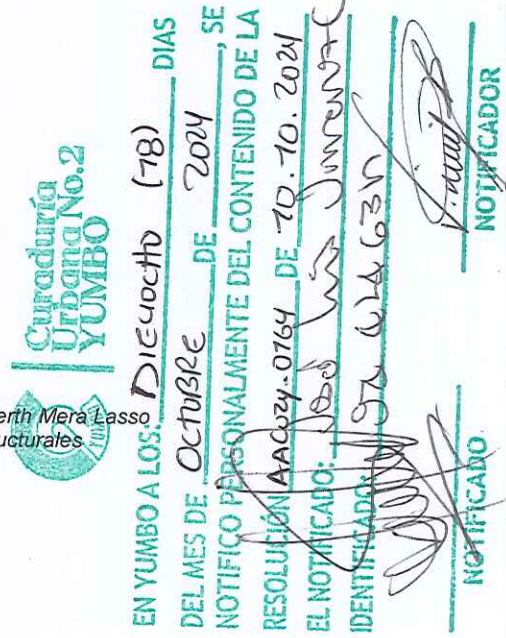 Curaduría
Urbana No.2
YUMBO
erth Mera Lasso
ucturales
EN YUMBO A LOS: DIECIOCHO (18) DIAS
DEL MES DE OCTUBRE DE 2024, SE
NOTIFICO PERSONALMENTE DEL CONTENIDO DE LA
RESOLUCIÓN DE 10.10.2024
EL NOTIFICADO: José
IDENTIFICADO:
NOTIFICADO NOTIFICADOR